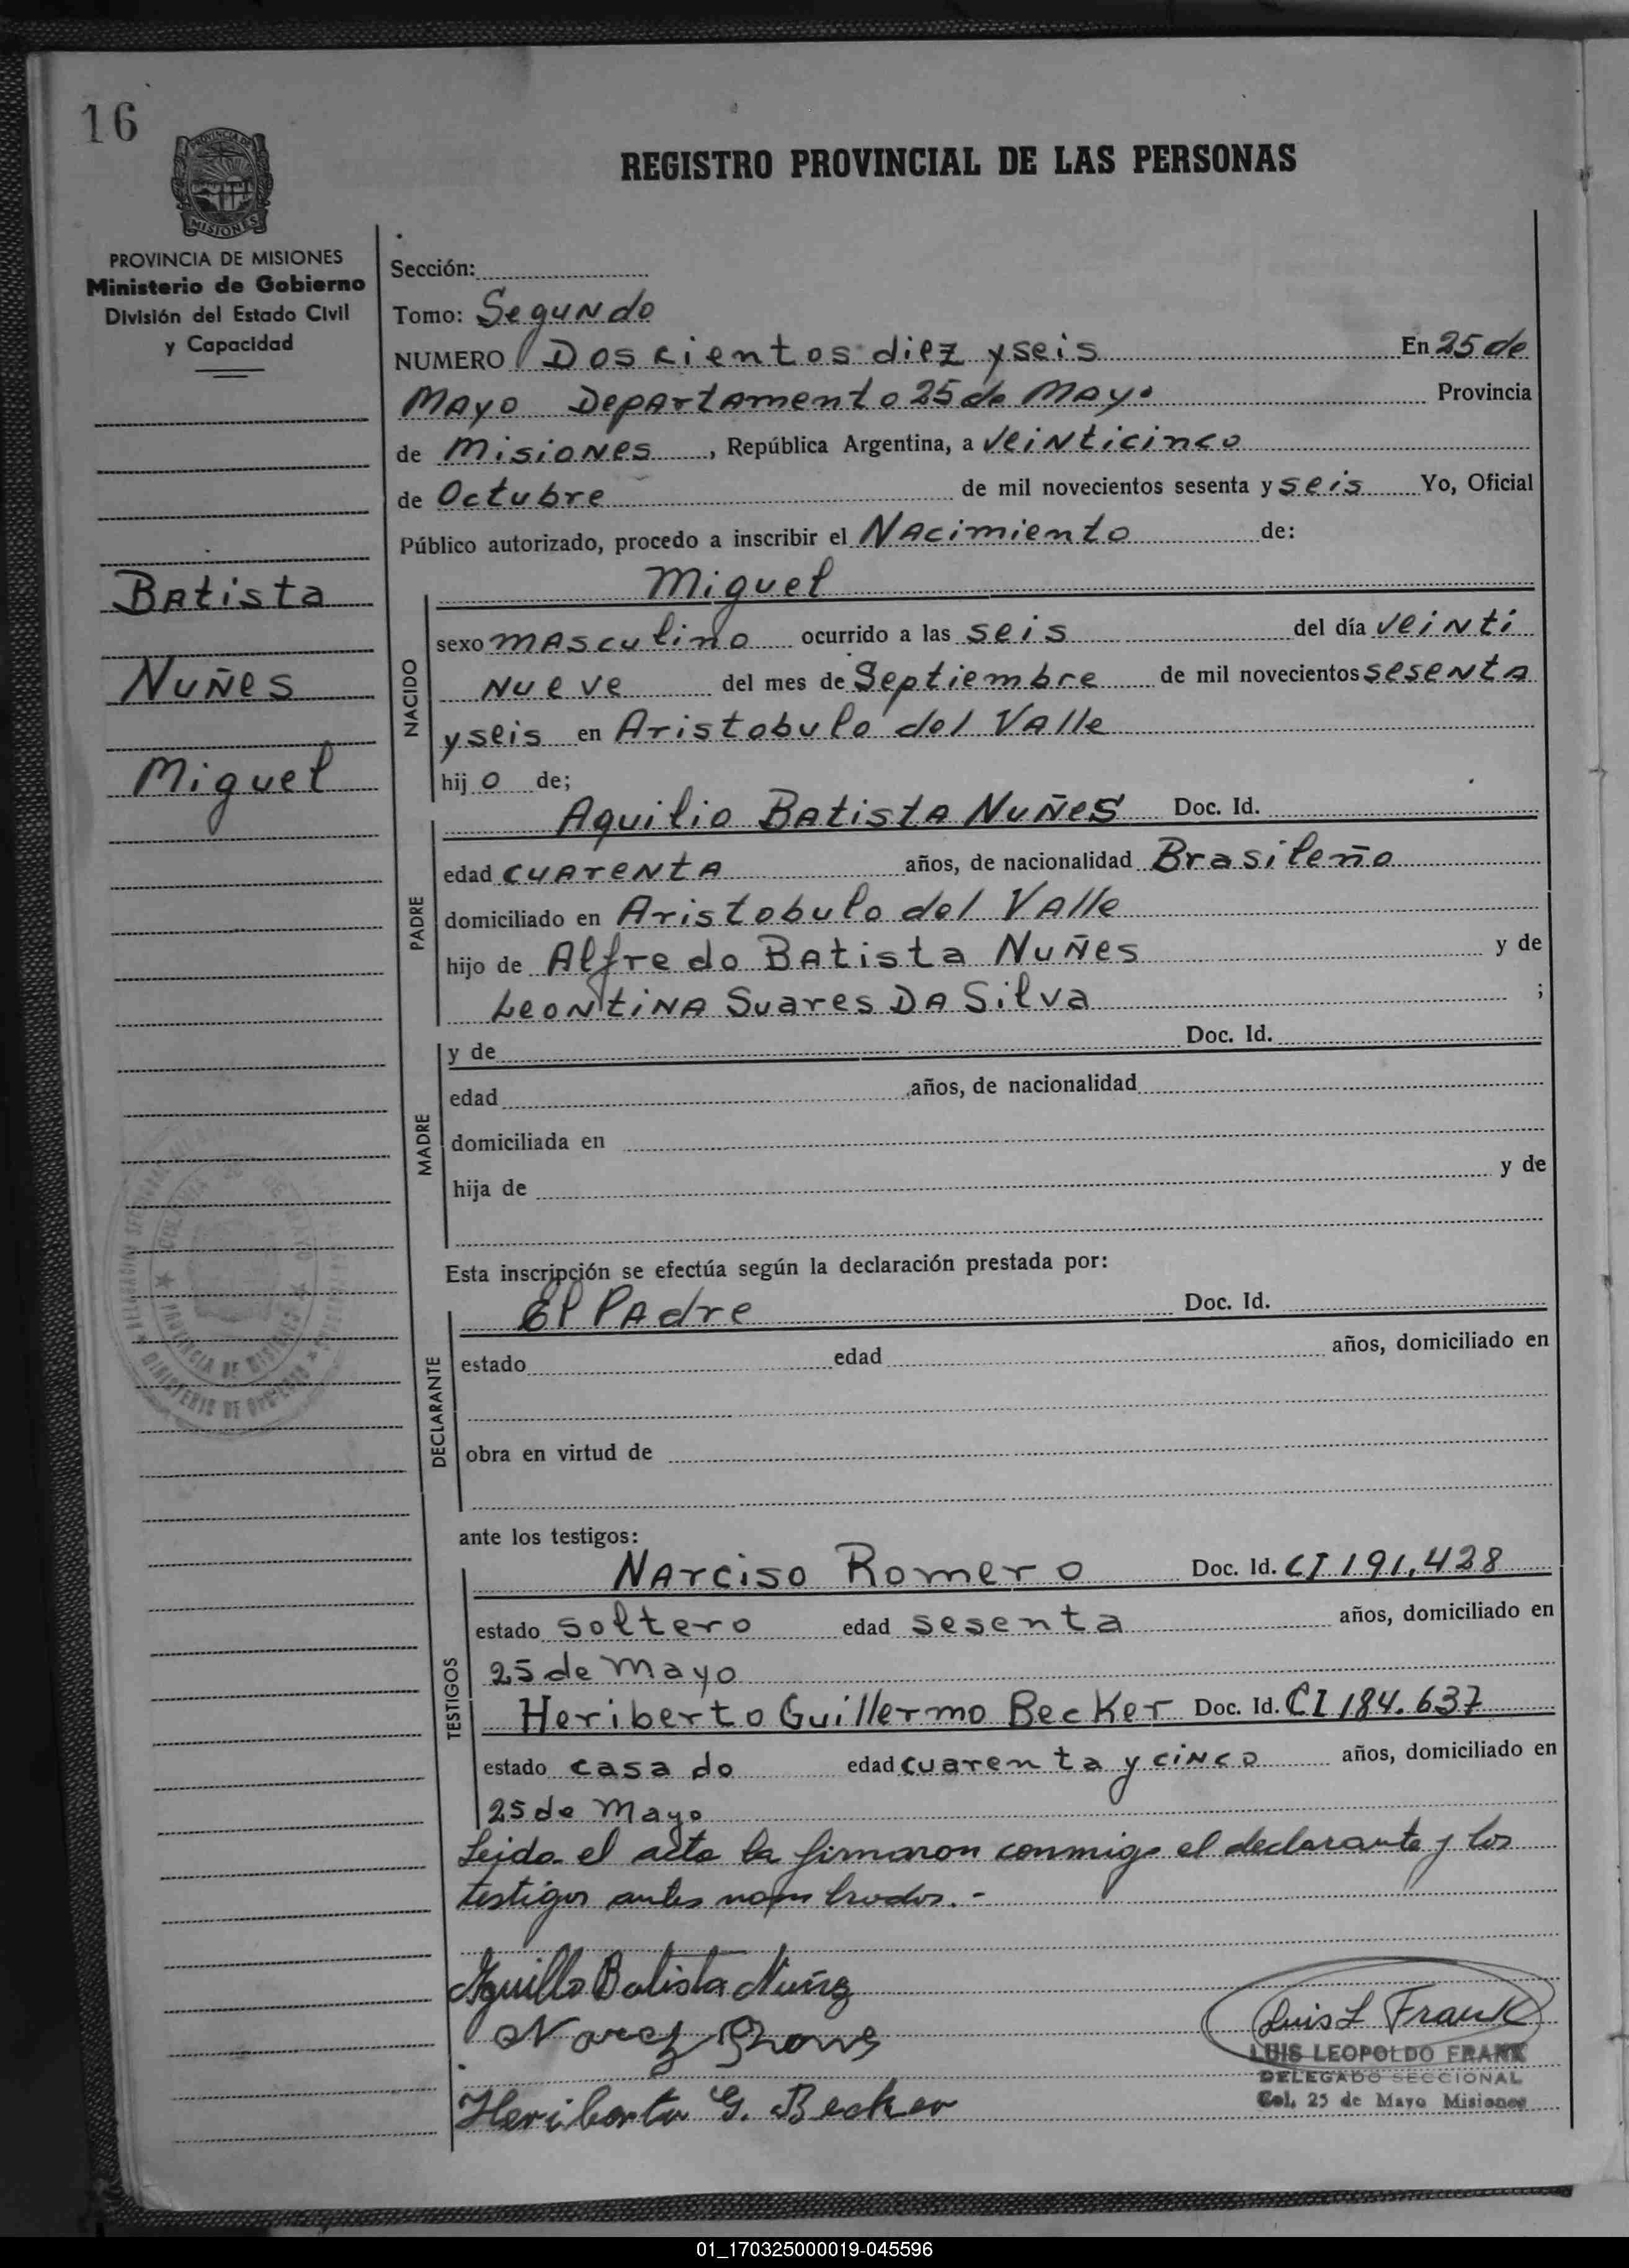 16
PROVINCIA DE
MISIONES
REGISTRO PROVINCIAL DE LAS PERSONAS
PROVINCIA DE MISIONES
Ministerio de Gobierno
División del Estado Civil
y Capacidad
Batista
Nuñes
Miguel
Sección:
Tomo: Segundo
NUMERO Doscientos diez y seis En 25 de
Mayo Departamento 25 de Mayo Provincia
de Misiones, República Argentina, a veinticinco
de Octubre de mil novecientos sesenta y seis Yo, Oficial
Público autorizado, procedo a inscribir el Nacimiento de:
NACIDO
Miguel
sexo masculino ocurrido a las seis del día veinti
nueve del mes de Septiembre de mil novecientos sesenta
y seis en Aristobulo del Valle
hijo de;
PADRE
Aquilio Batista Nuñes Doc. Id.
edad cuarenta años, de nacionalidad Brasileño
domiciliado en Aristobulo del Valle
hijo de Alfredo Batista Nuñes y de
Leontina Suares Da Silva ;
MADRE
y de Doc. Id.
edad años, de nacionalidad
domiciliada en
hija de y de
Esta inscripción se efectúa según la declaración prestada por:
DECLARANTE
El Padre Doc. Id.
estado edad años, domiciliado en
obra en virtud de
ante los testigos:
TESTIGOS
Narciso Romero Doc. Id. CI 191,428
estado soltero edad sesenta años, domiciliado en
25 de Mayo
Heriberto Guillermo Becker Doc. Id. CI 184.637
estado casado edad cuarenta y cinco años, domiciliado en
25 de Mayo
Leida el acta la firmaron conmigo el declarante y los
testigos antes nombrados.-
Aquillo Batista Nuñez
Heriberto G. Becker
Luis L Frank
LUIS LEOPOLDO FRANK
DELEGADO SECCIONAL
Col. 25 de Mayo Misiones
PROVINCIA DE MISIONES
MINISTERIO DE GOBIERNO
01_170325000019-045596